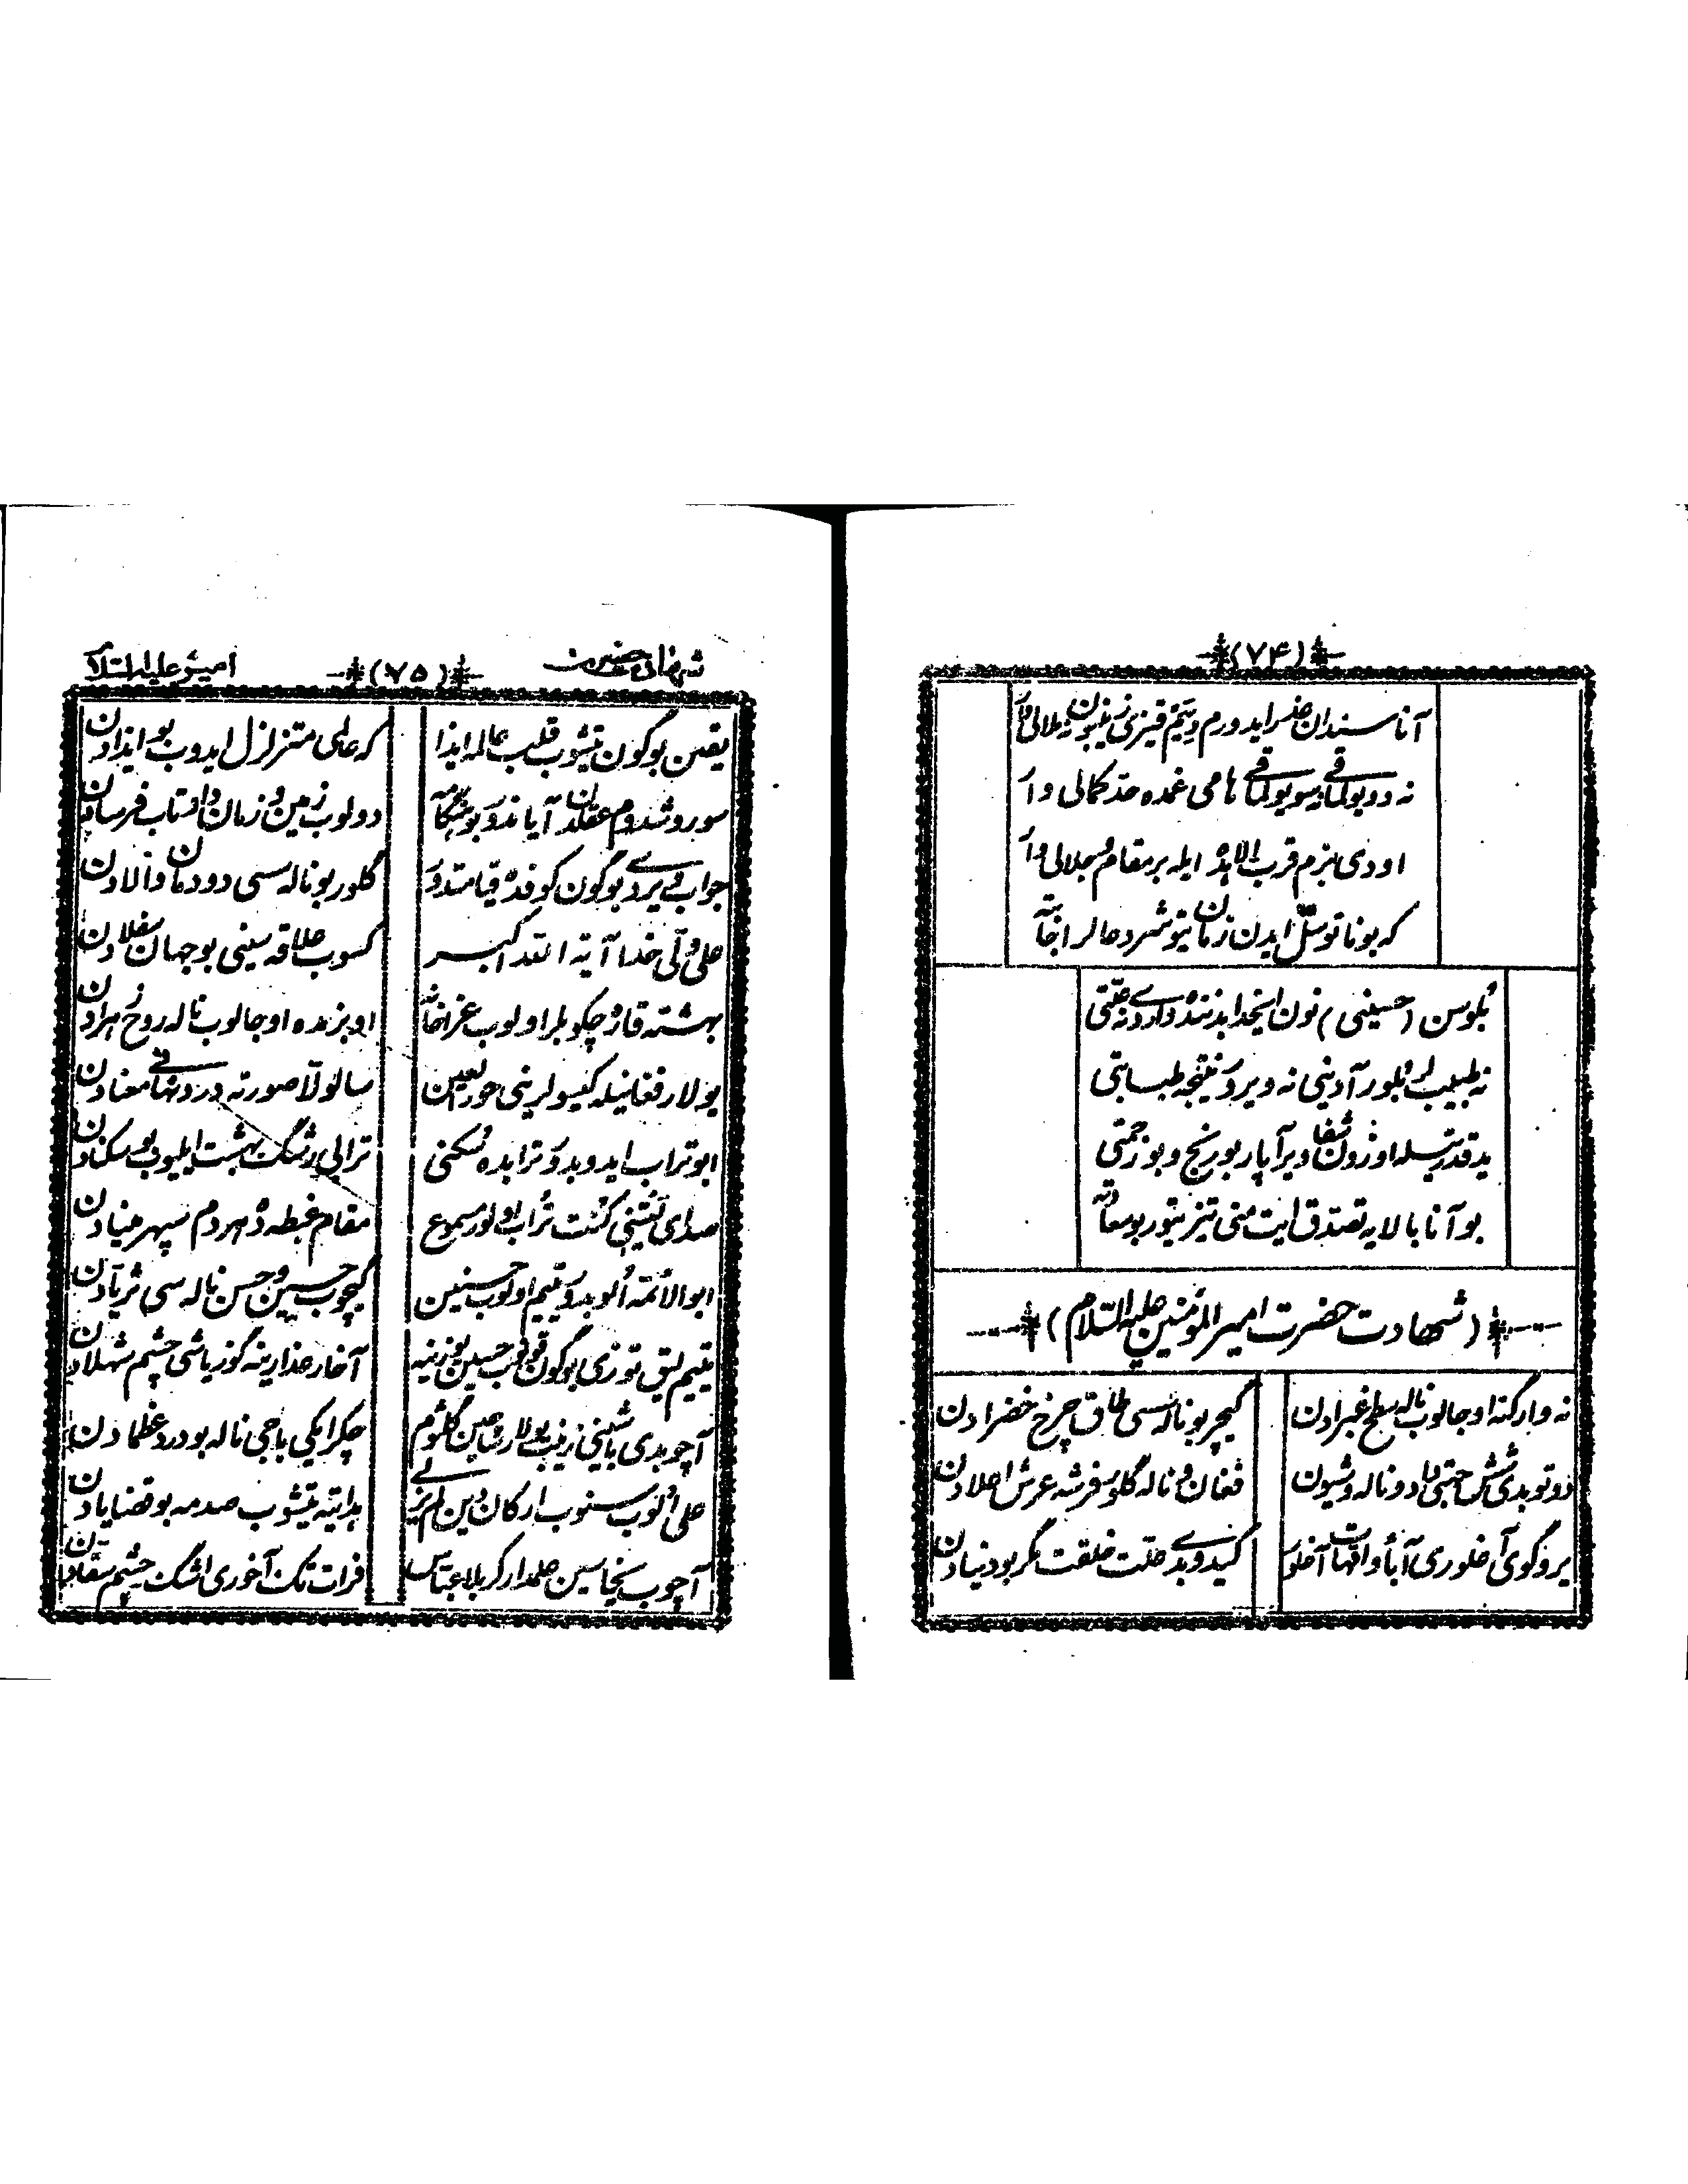 (۷۴)
آنا سندان حذر ایدورم دییم قیزی زینبون نه ملالی وار
نه دویولماقی سویولماقی نامی غمده حد کمالی وار
اودی بزم قرب الاهده ایله بر مقام و جلالی وار
که بونا توسّل ایدن زمان یتوشرد عالر اجابته
بلوسن (حسینی) نون ایخدا بدننده وارد نه علّتی
نه طبیب لر بلور آدینی نه ویرور نتیجه طبابتی
ید قدرتیله اوزون شفا ویر آپار بو رنج و بو زحمتی
بو آنا بالایه تصدق ایت منی تیز یتور بو سعادته
(شهادت حضرت امیر المؤمنین علیه السّلام)
نه وار گنه اوجالوب ناله سطح غبرادن
گیچر بو ناله سسی طاق چرخ خضرادن
دوتوبدی شش جهتی باد و ناله و شیون
فغان و ناله گلور فرشه عرش اعلادن
یرو گوی آخلوری آبأ و امّهات آخلور
گیدوبدی علت خلقت مگر بو دنیادن
شهادت حضرت
(۷۵)
امیر علیه السلام
یقین بو گون یتشوب قلب عالمه ایذا
که عالمی متزلزل ایدوب بو ایذادن
سوروشدوم عقلدن آیا ندور بو هنگامه
دولوب زمین و زمان داد تاب فرسادن
جواب ویردی بو گون کوفده قیامتدور
گلور بو ناله سسی دودمان والادن
علی ولّی خدا آیة الله اکبر
کسوب علاقه سینی بو جهان سفلادن
بهشته قاره چکوبلر اولوب عزاخانه
اوبزمده اوجالوب ناله روح زهرادن
یولار فغانیله گیسولرینی حورالعین
سالوللا صورته دردونهانی معنادن
ابوتراب ایدوبدور ترابده مسکنی
ترابی رشگ بهشت ایلیوب بو سکنادن
صدای لیتنی کنت تراب اولور مسموع
مقام غبطه ده هردم سپهر مینادن
ابوالائمه الوبدور یتیم اولوب حسنین
گیچوب حسین و حسن ناله سی ثریادن
یتیم لیق توزی بو گون قونوب حسین یوزینه
آخار عذارینه گوز یاشی چشم شهلادن
آچوبدی باشینی زینب یولار ساچین کلثوم
چکر ایکی باجی ناله بو درد عظمادن
علی الوب سنوب ارکان دین لم یزلی
هدایته یتشوب صدمه بو قضایادن
آچوب یخاسین علمدار کربلا عبّاس
فرات تک آخوری اشگ چشم سقّادن